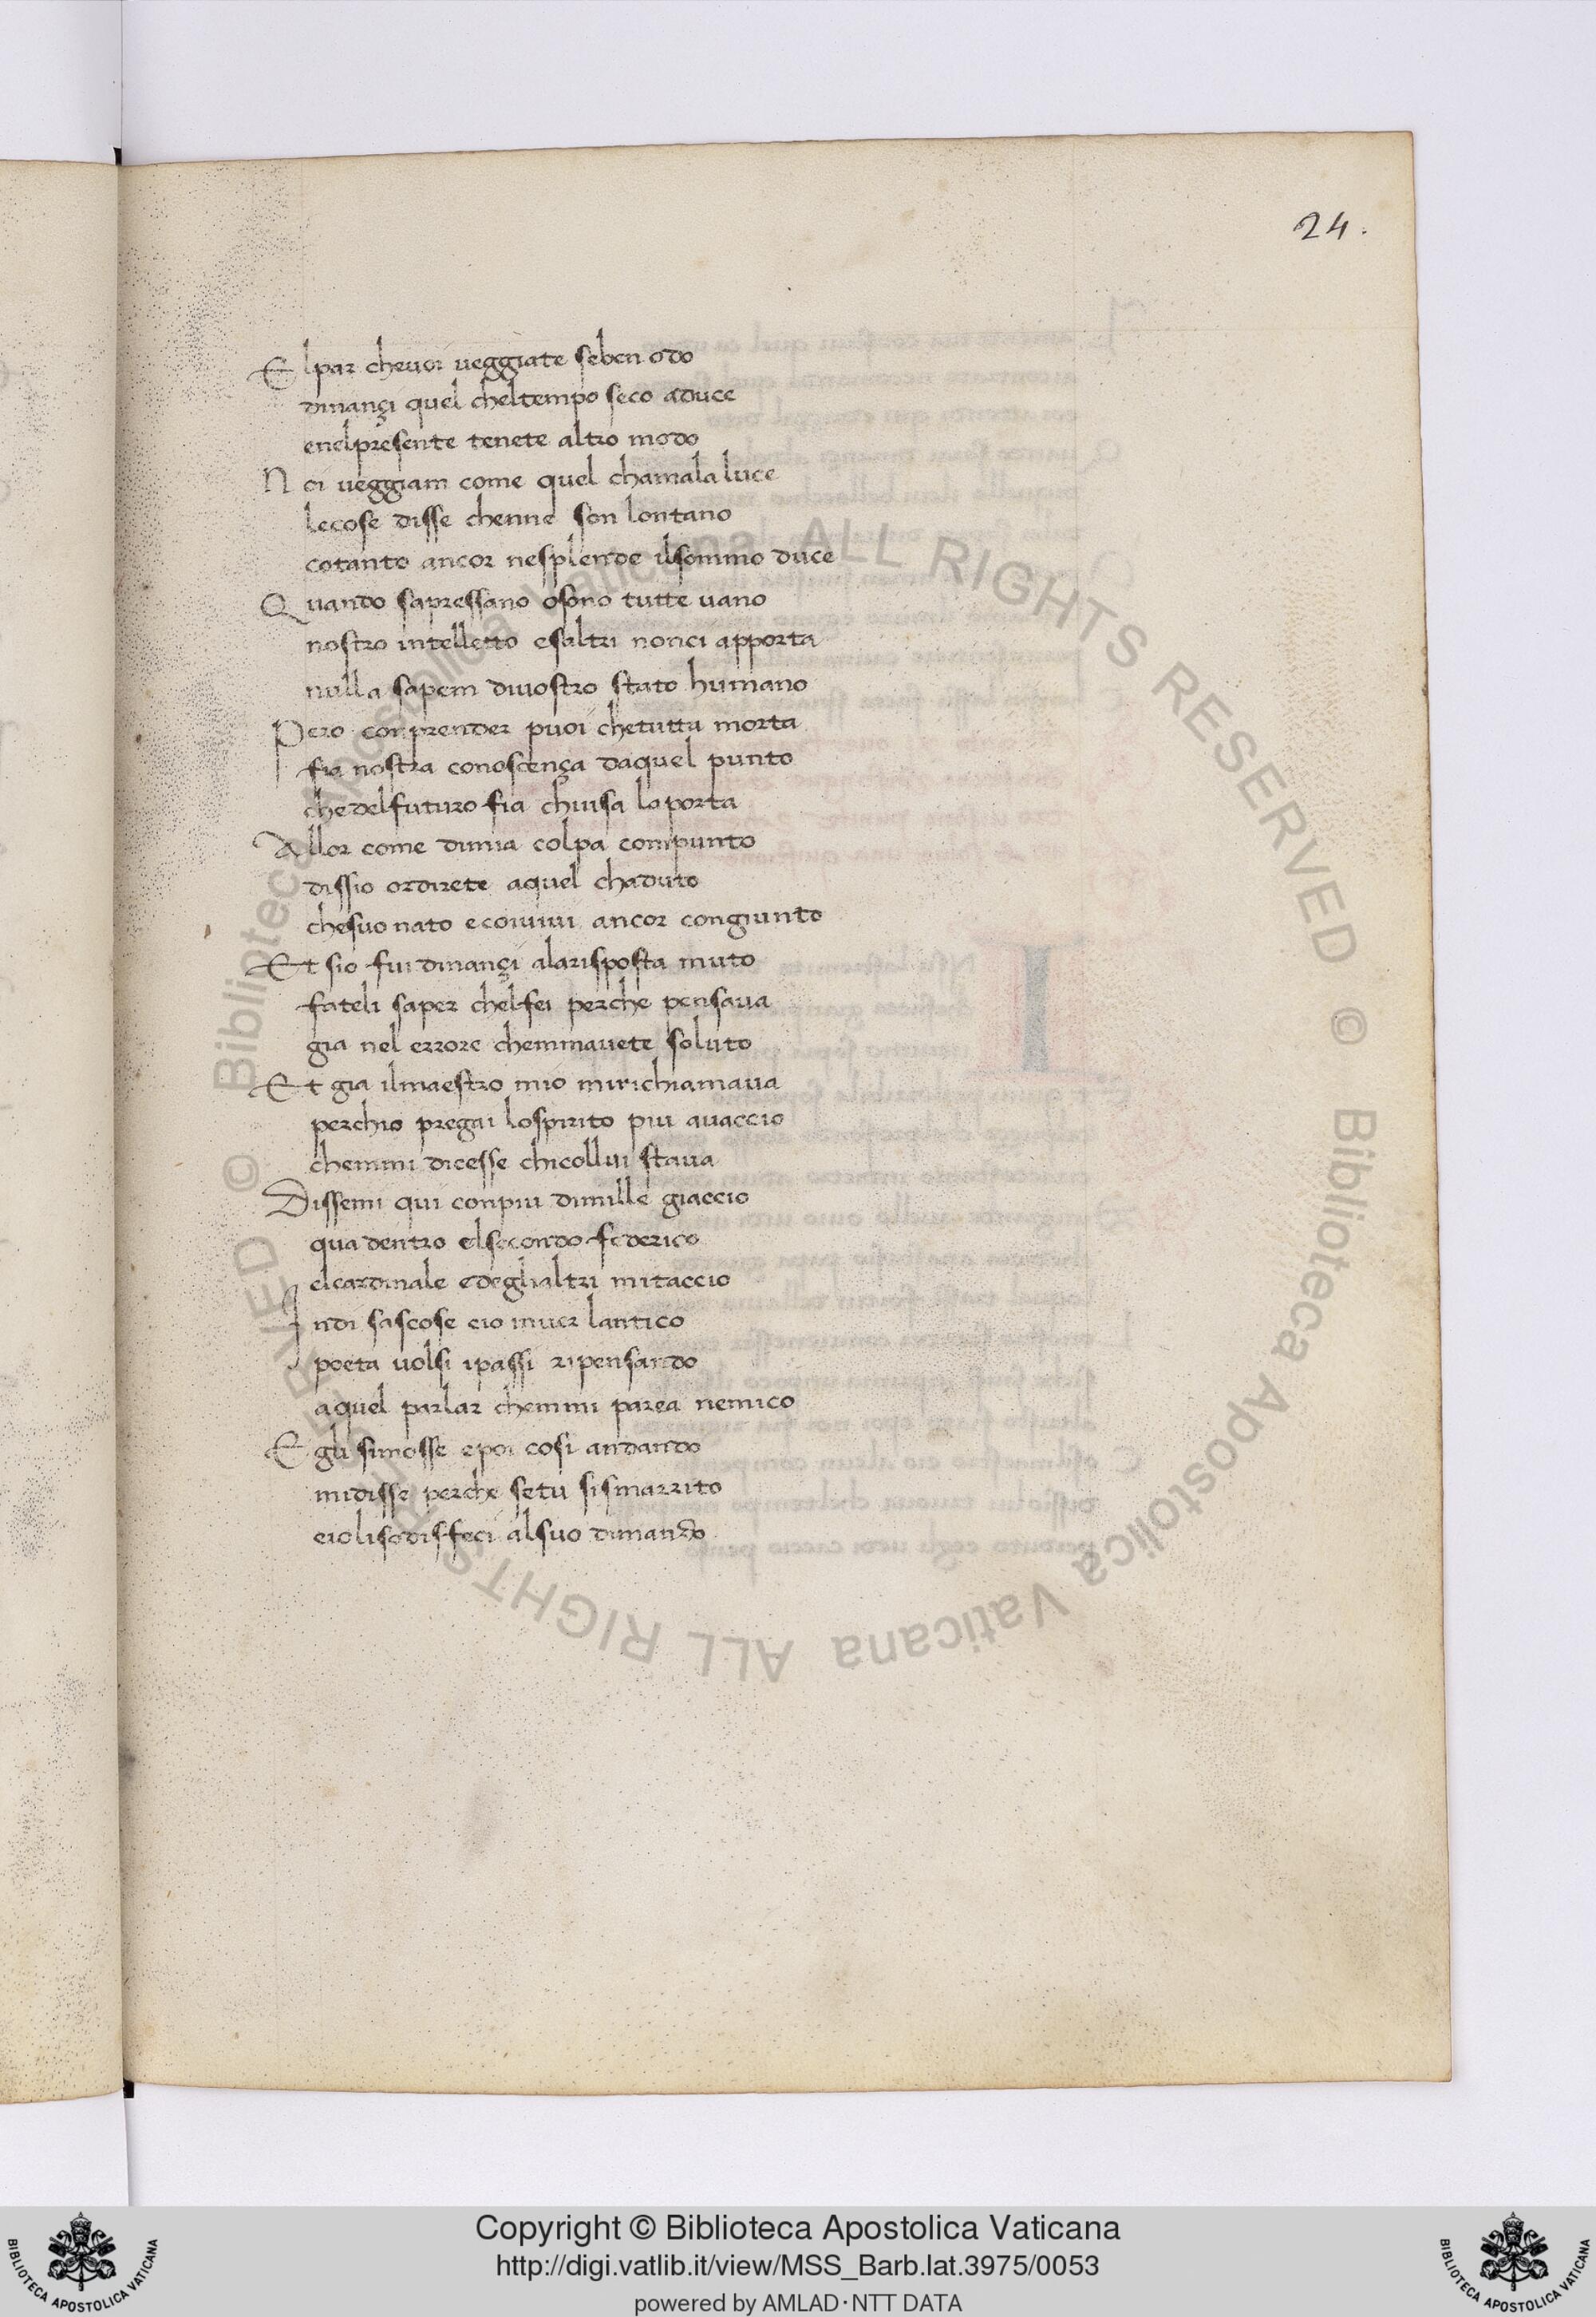 24.
El par chevoi veggiate seben odo
dinançi quel cheltempo seco aduce
enelpresente tenete altro modo
Noi veggiam come quel chamala luce
lecose disse chenne son lontano
cotanto ancor nesplende ilsommo duce
Quando sapressano osono tutte vano
nostro intelletto esaltri nonci apporta
nulla sapem divostro stato humano
Pero conprender puoi chetutta morta
fia nostra conoscença daquel punto
chedelfuturo fia chiusa laporta
Allor come dimia colpa compunto
dissio ordirete aquel chaduto
chesuo nato ecoivivi ancor congiunto
Et sio fui dinançi alarisposta muto
fateli saper chelfei perche pensava
gia nel errore chemmavete soluto
Et gia ilmaestro mio mirichiamava
perchio pregai lospirito piu avaccio
chemmi dicesse chicollui stava
Dissemi qui conpiu dimille giaccio
qua dentro elsecondo federico
elcardinale edeglialtri mitaccio
Indi sascose eio inver lantico
poeta volsi ipassi ripensando
aquel parlar chemmi parea nemico
Egli simosse epoi cosi andando
midisse perche setu sismarrito
eiolisodisfeci alsuo dimando
Copyright © Biblioteca Apostolica Vaticana
http://digi.vatlib.it/view/MSS_Barb.lat.3975/0053
powered by AMLAD·NTT DATA
BIBLIOTECA APOSTOLICA VATICANA
BIBLIOTECA APOSTOLICA VATICANA
© Biblioteca Apostolica Vaticana ALL RIGHTS RESERVED © Biblioteca Apostolica Vaticana ALL RIGHTS RESERVED